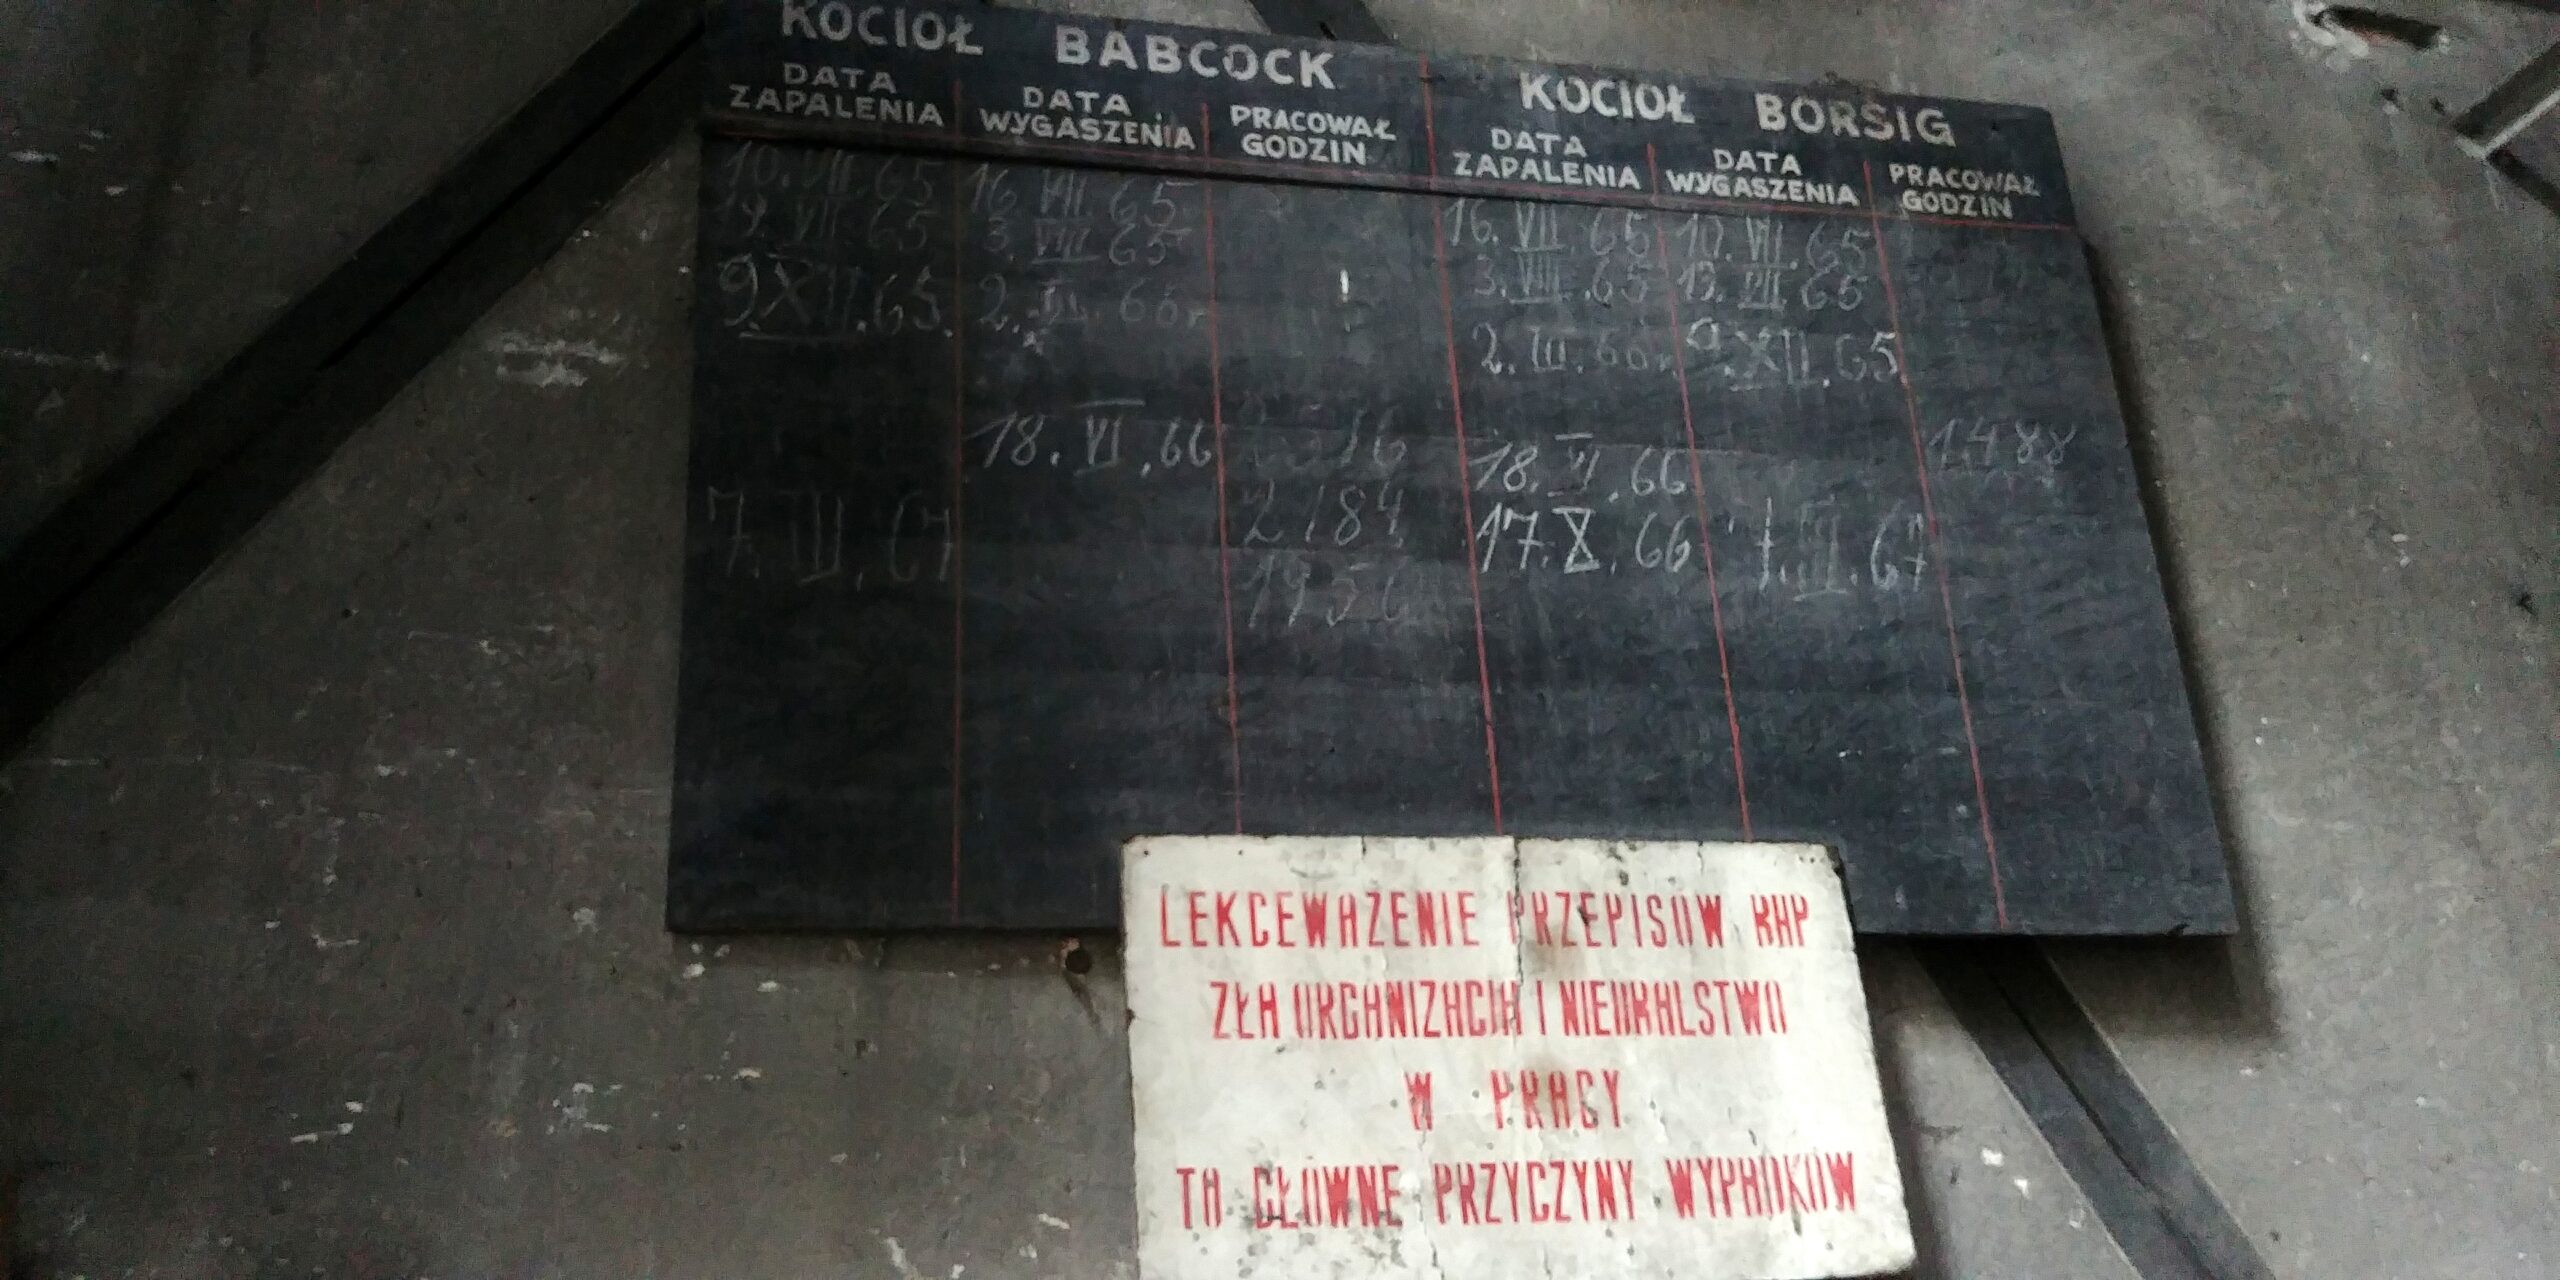 KOCIOŁ BABCOCK
DATA ZAPALENIA
DATA WYGASZENIA
PRACOWAŁ GODZIN
10.VII.65 16.VII.65
19.VII.65 3.VIII.65
9.XII.65. 2.III.66r
18.VI.66
7.III.67 2184
KOCIOŁ BORSIG
DATA ZAPALENIA
DATA WYGASZENIA
PRACOWAŁ GODZIN
16.VII.65
3.VIII.65
2.III.66r XII.65
18.VI.66 1488
17.X.66 7.III.67
LEKCEWAŻENIE PRZEPISÓW BHP
ZŁA ORGANIZACJA I NIEDBALSTWO
W PRACY
TO GŁÓWNE PRZYCZYNY WYPADKÓW